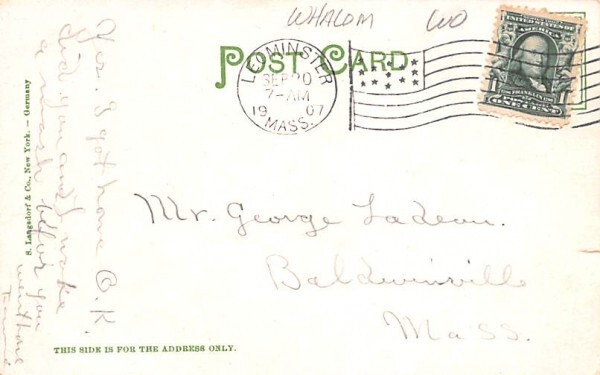 WHALOM WO
POST CARD
LEOMINSTER
SEP 20
7-AM
1907
MASS.
UNITED STATES OF AMERICA
1 1
ONE CENT
Mr. George Ladeau.
Baldwinville
Mass.
Yes I got home O.K.
did you and I make
a mash befor you
went home
S. Langsdorf & Co., New York. — Germany
THIS SIDE IS FOR THE ADDRESS ONLY.